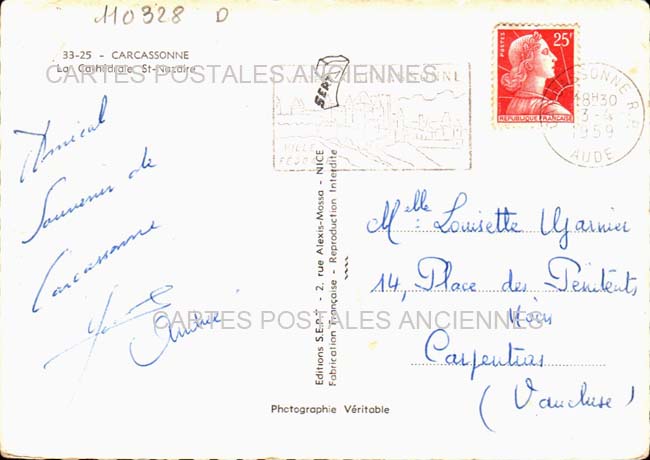 110328 D
33-25 - CARCASSONNE
La Cathédrale St-Nazaire
CARTES POSTALES ANCIENNES
Amical
Souvenir de
Carcassonne
André
SEPT
VILLE
Editions S.E.P.T. - 2, rue Alexis-Mossa - NICE
Fabrication Française - Reproduction Interdite
Photographie Véritable
POSTES
25F
REPUBLIQUE FRANÇAISE
CARCASSONNE R.P.
18H30
3-4
1959
AUDE
Melle Louisette Garnier
14, Place des Pénitents
Noirs
CARTES POSTALES ANCIENNES
Carpentras
(Vaucluse)